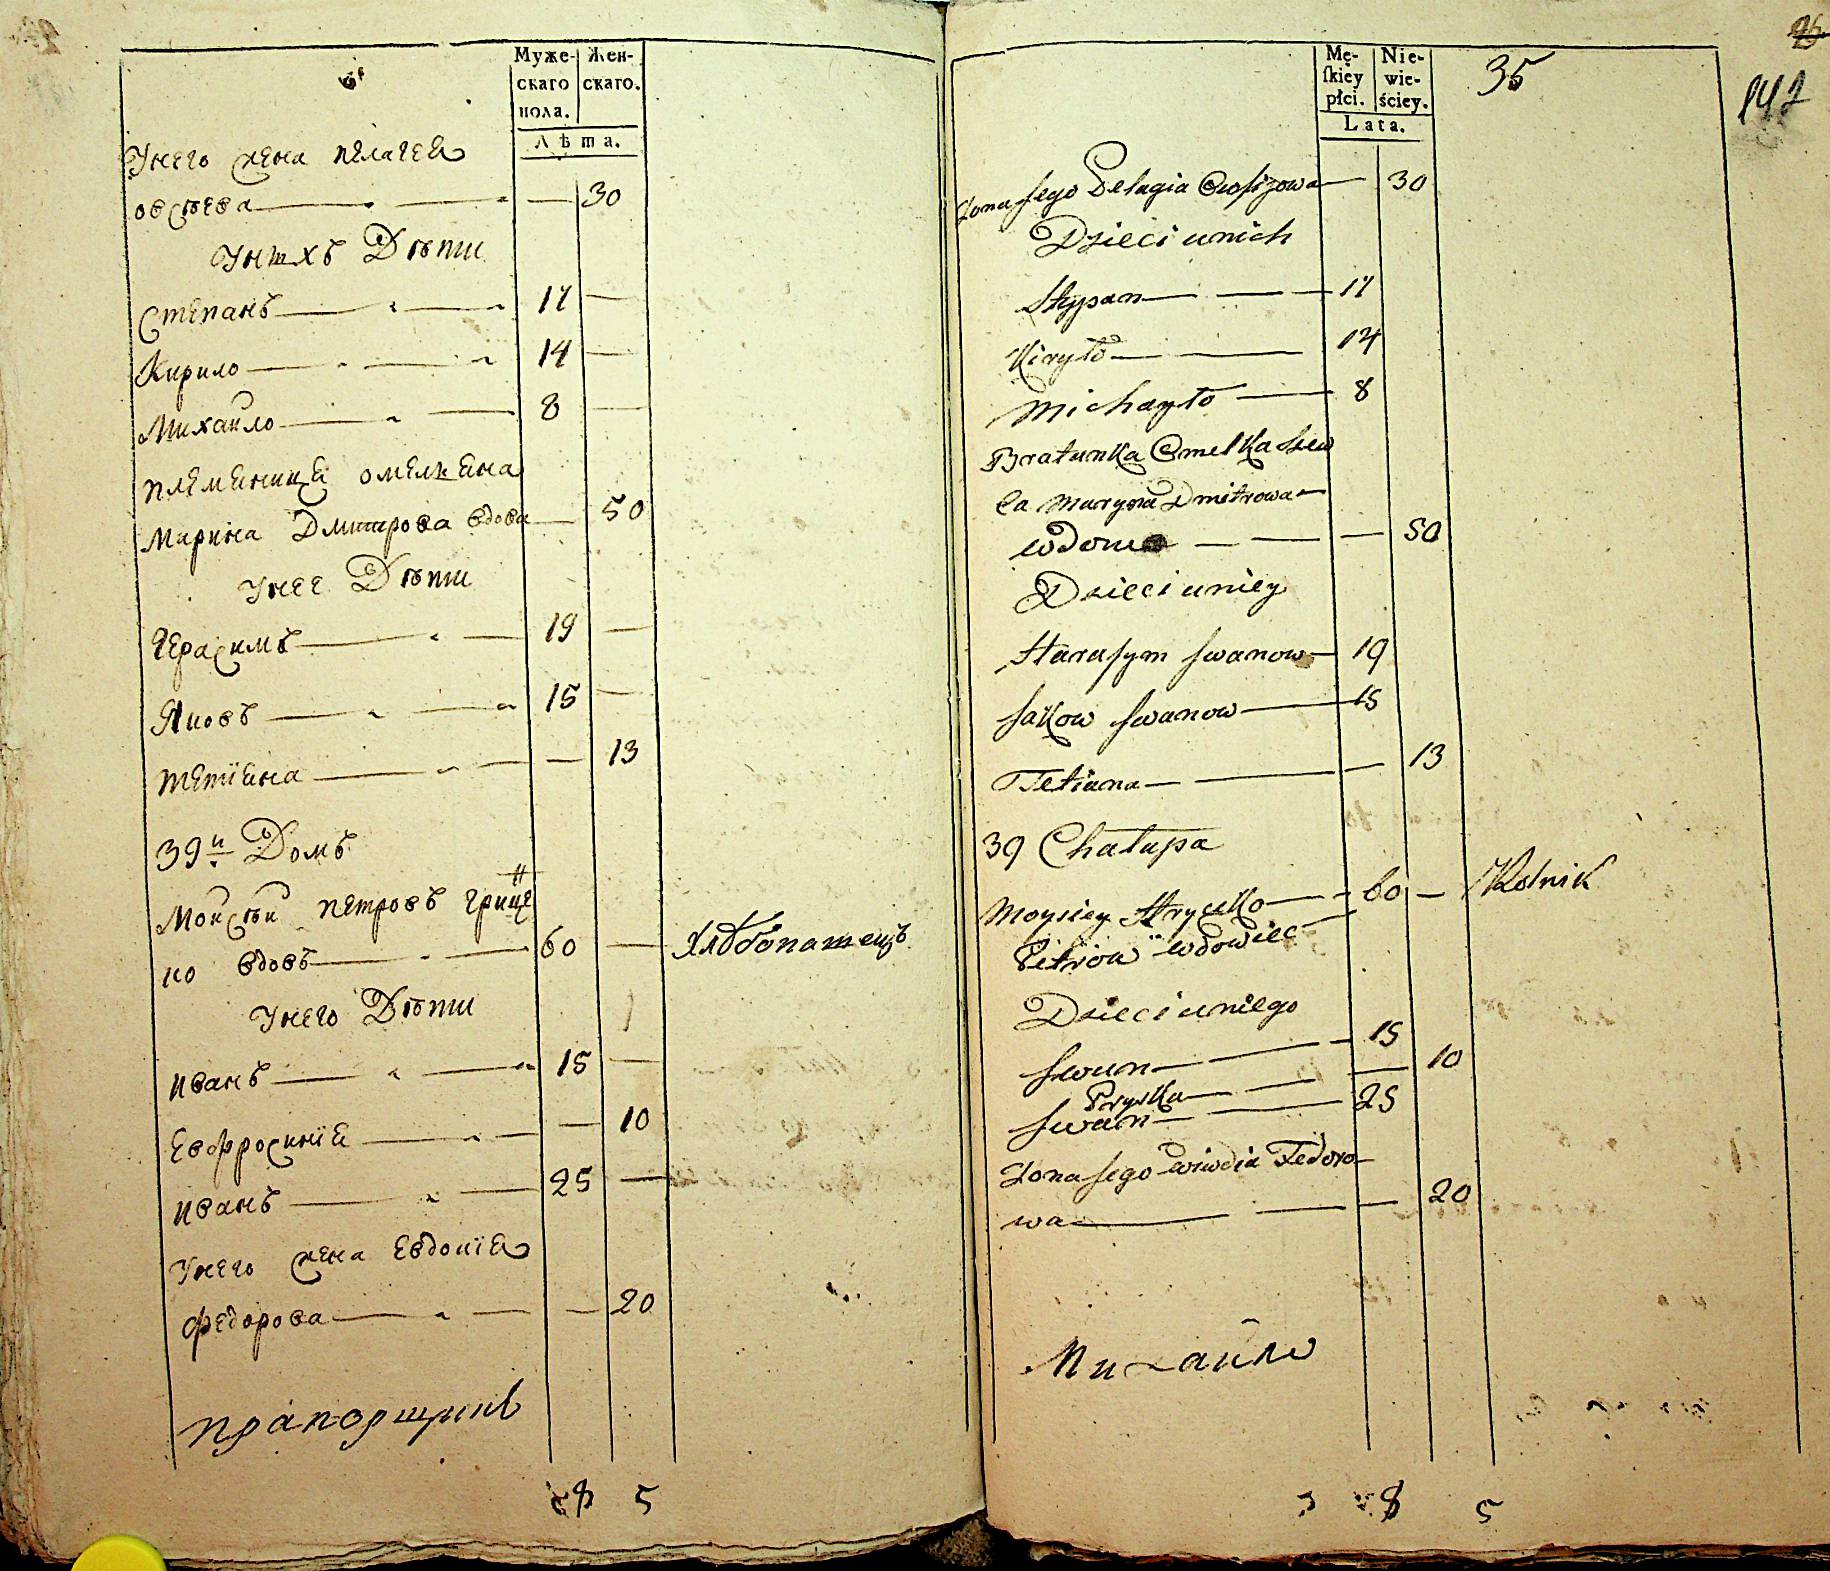 Муже-
скаго
пола.
Жен-
скаго.
Лѣта.
Унего жена пелагея
овсѣева 30
Унихъ Дѣти
Степанъ 17
Кирило 14
Михаило 8
племеница омелкова
Марина Дмитрова вдова 50
Унее Дѣти
Герасимъ 19
Яковъ 15
тетіана 13
39й Домъ
Моисѣй петровъ гриц
ко вдовъ 60 Хлѣбопашецъ
Унего Дѣти
иванъ 15
Евфросинія 10
иванъ 25
Унего жена Евдокія
федорова 20
прапорщикъ
8 5
Mę-
ſkiey
płci.
Nie-
wie-
ściey.
Lata.
35
26
142
Zona Jego Pelagia 30
Dzieci unich
Stypan 17
Kiryło 14
Michayło 8
Bratunka Omelka
Maryna Dmitrowa
wdowa 50
Dzieci uniey
Harasym Iwanow 19
Jakow Iwanow 15
Tetiana 13
39 Chałupa
Moysiey Hrycko 60 Rolnik
Petrow wdowiec
Dzieci uniego
Iwan 15
Pryska 10
Iwan 25
Zona Jego Wiwdia Fedoro
wa 20
Михайло
8 5